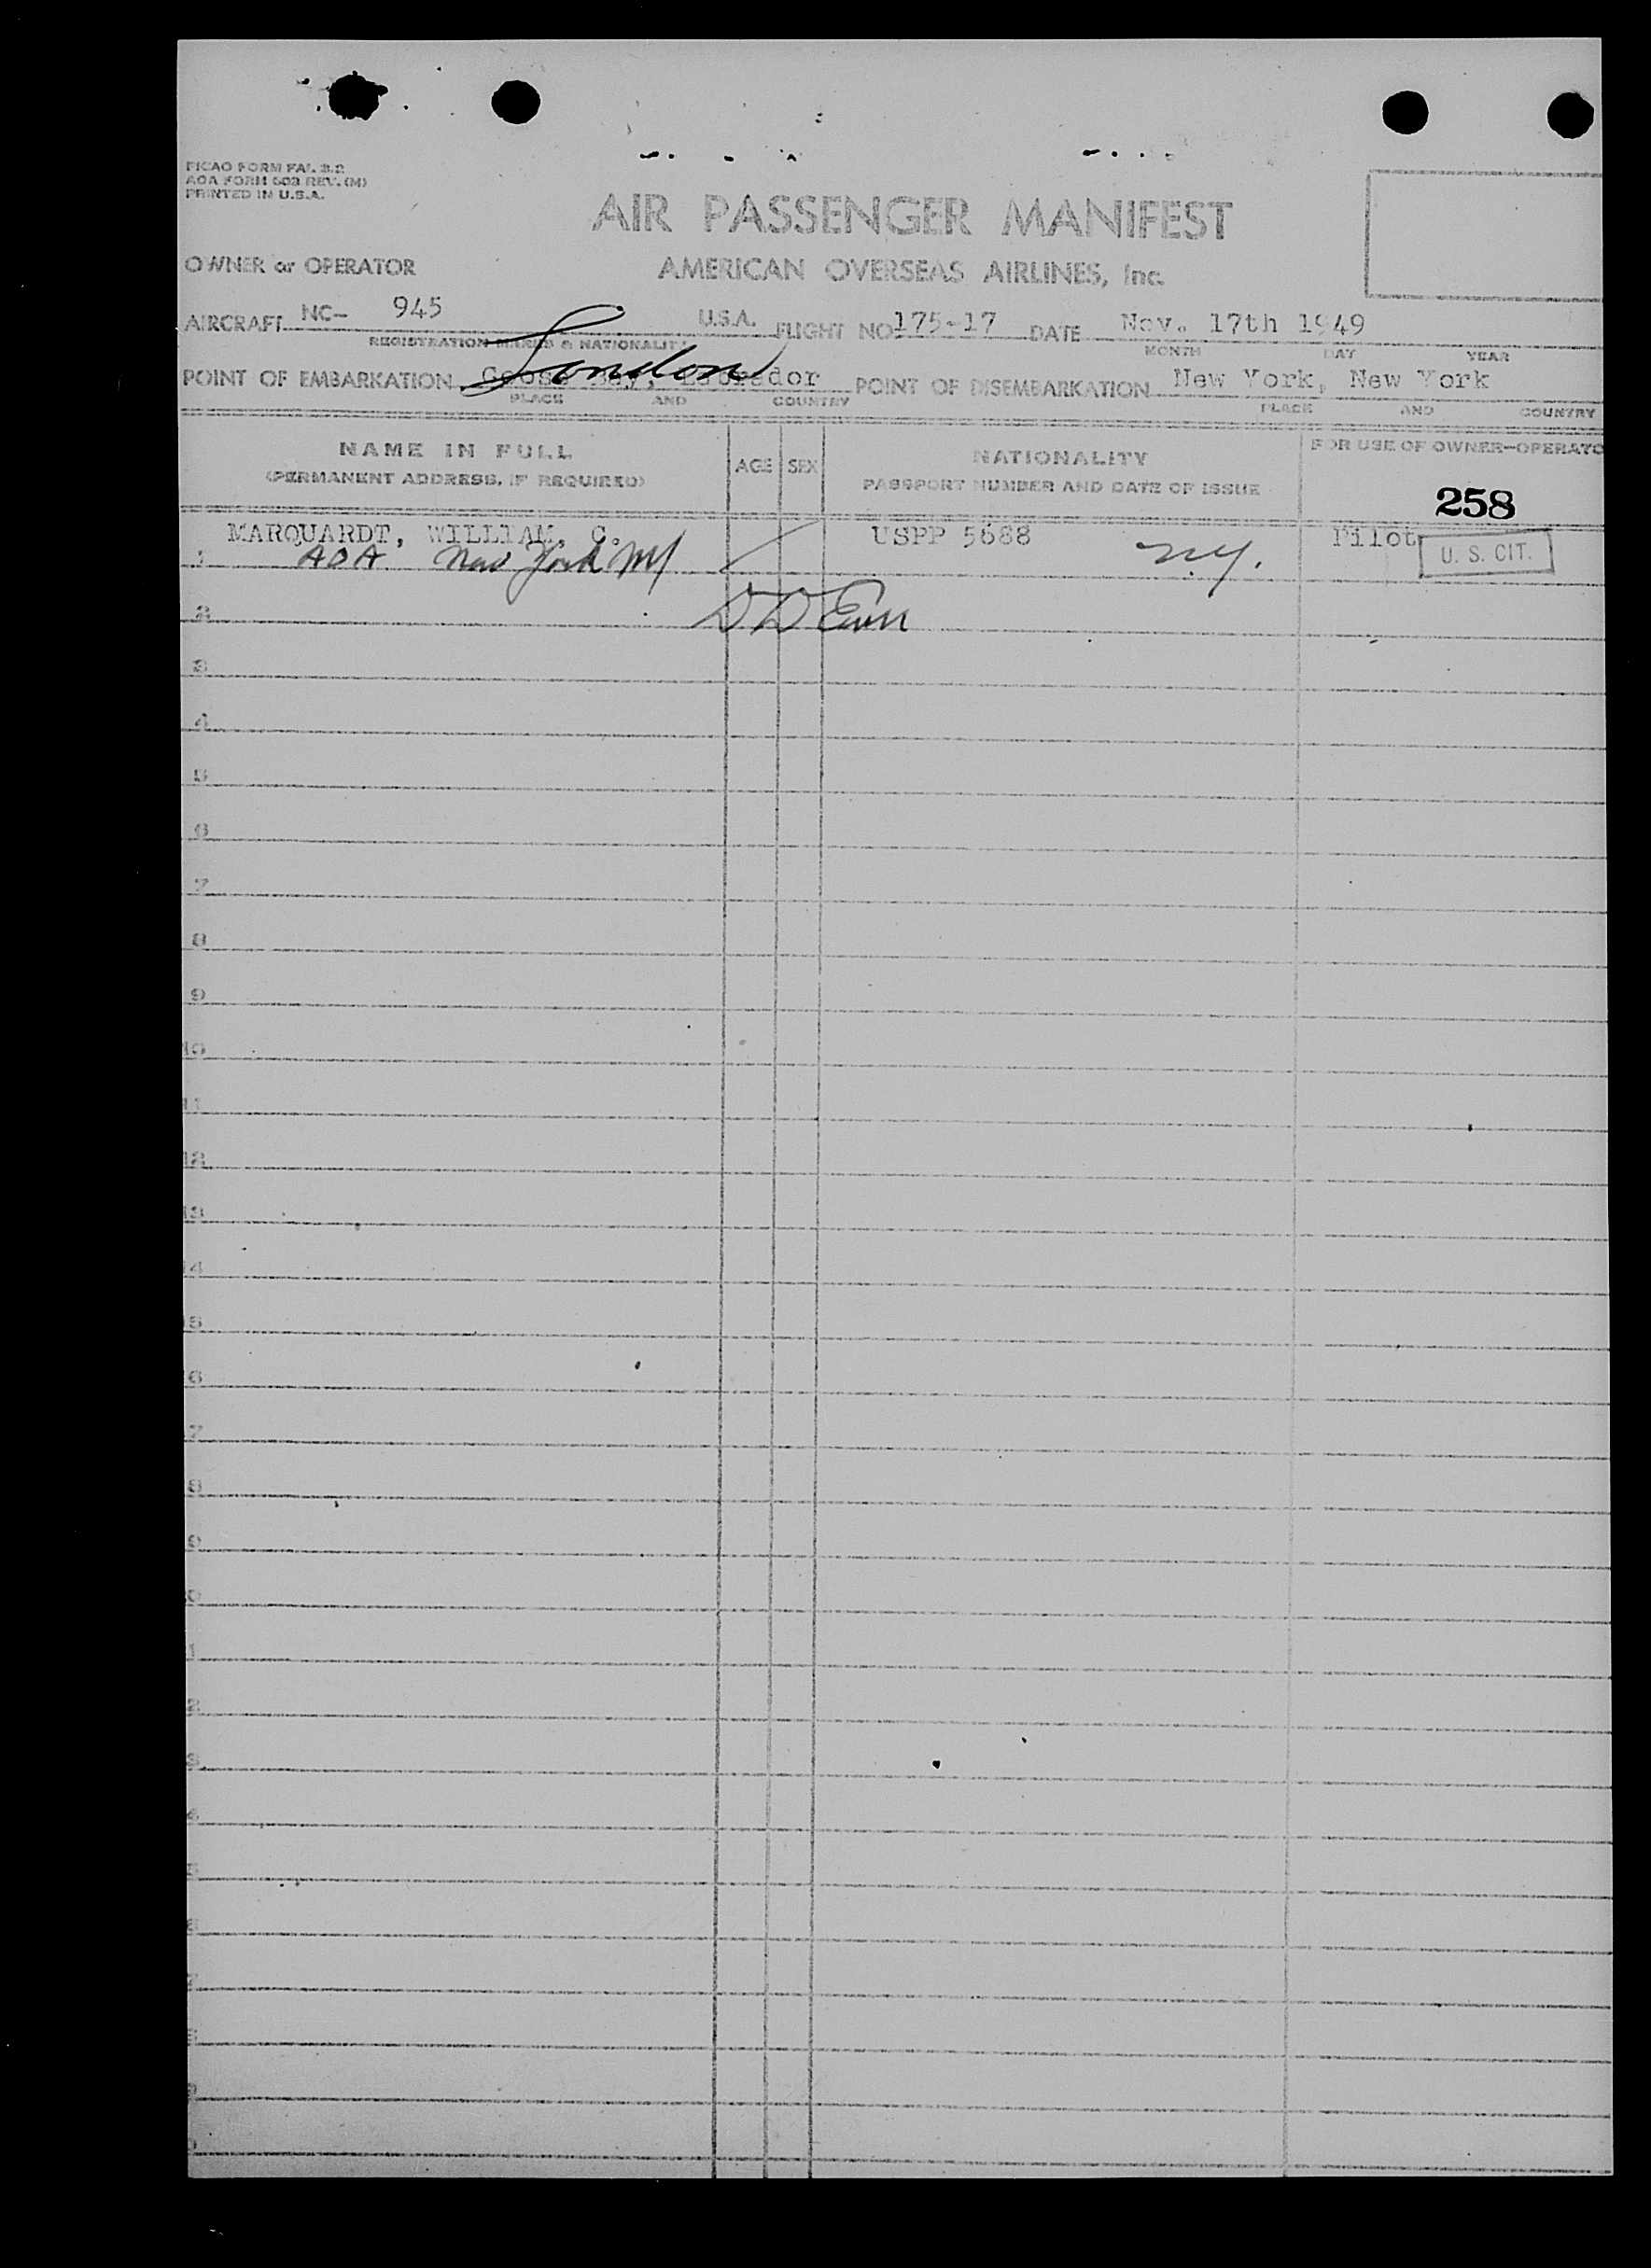 PICAO FORM FAL 2.2
AOA FORM 603 REV. (M)
PRINTED IN U.S.A.
AIR PASSENGER MANIFEST
OWNER or OPERATOR AMERICAN OVERSEAS AIRLINES, Inc.
AIRCRAFT NC- 945 U.S.A. FLIGHT NO 175-17 DATE Nov. 17th 1949
REGISTRATION MARKS & NATIONALITY MONTH DAY YEAR
London
POINT OF EMBARKATION Goose Bay, Labrador POINT OF DISEMBARKATION New York, New York
PLACE AND COUNTRY PLACE AND COUNTRY
NAME IN FULL AGE SEX NATIONALITY FOR USE OF OWNER-OPERATO
(PERMANENT ADDRESS, IF REQUIRED) PASSPORT NUMBER AND DATE OF ISSUE
258
MARQUARDT, WILLIAM, C. USPP 5688 Pilot
1 AOA New York NY N.Y. U. S. CIT.
2 D D
3
4
5
6
7
8
9
10
11
12
13
14
15
6
7
8
9
0
1
2
3
4
5
6
7
8
9